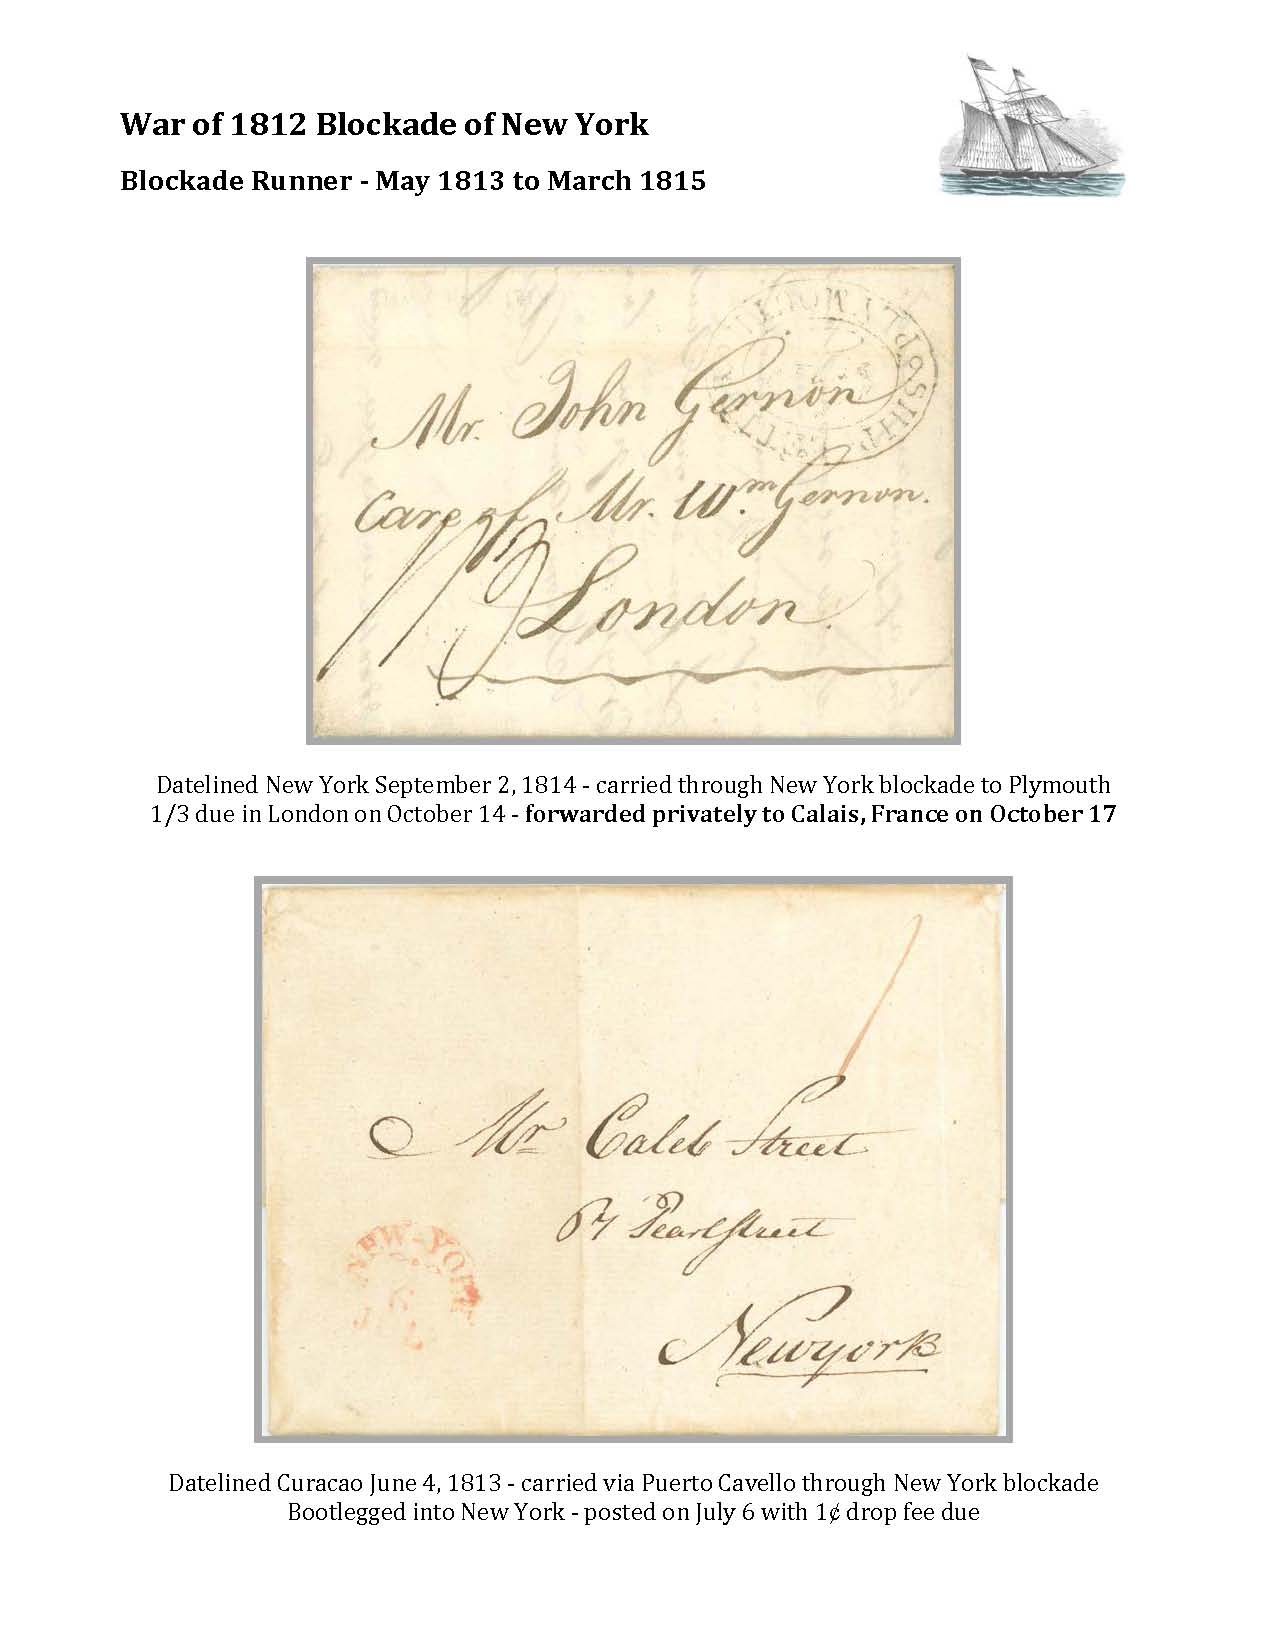 War of 1812 Blockade of New York
Blockade Runner - May 1813 to March 1815
SHIP LETTER
Mr. John Gernon
Care of Mr. Wm. Gernon.
1/3
London
Datelined New York September 2, 1814 - carried through New York blockade to Plymouth
1/3 due in London on October 14 - forwarded privately to Calais, France on October 17
1
Mr Caleb Street
67 Pearl Street
Newyork
NEW-YORK
6
JUL
Datelined Curacao June 4, 1813 - carried via Puerto Cavello through New York blockade
Bootlegged into New York - posted on July 6 with 1¢ drop fee due